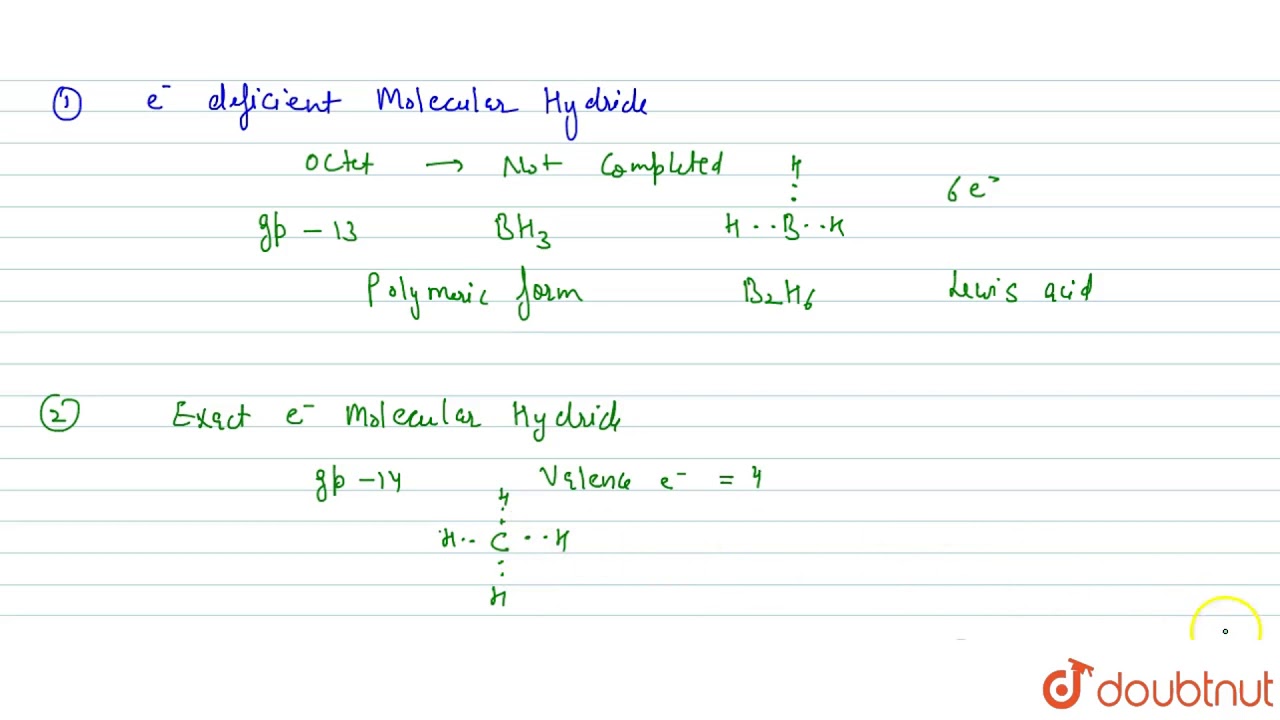 ① e⁻ deficient Molecular Hydride
Octet → Not Completed
H
:
6 e⁻
gp - 13 BH₃ H··B··H
Polymeric form B₂H₆ Lewis acid
② Exact e⁻ Molecular Hydride
gp - 14 Valence e⁻ = 4
H
:
H··C··H
:
H
doubtnut